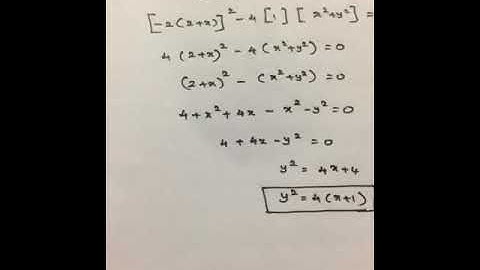 [-2(2+x)]² - 4 [1] [x²+y²] =
4 (2+x)² - 4 (x²+y²) = 0
(2+x)² - (x²+y²) = 0
4 + x² + 4x - x² - y² = 0
4 + 4x - y² = 0
y² = 4x+4
y² = 4(x+1)